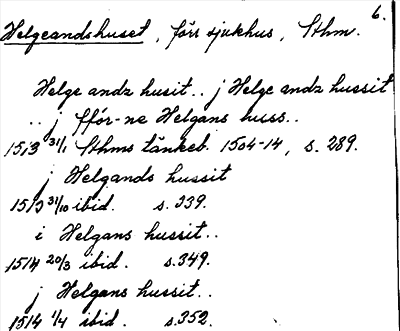 6.
Helgeandshuset, förr sjukhus, Sthm.
Helge andz husit.. j Helge andz hussit
.. j ffór-ne Helgans huss..
1513 31/1 Sthms tänkeb. 1504-14, s. 289.
j Helgands hussit
1513 31/10 ibid. s. 339.
i Helgans hussit..
1514 20/3 ibid. s. 349.
j Helgans hussit..
1514 1/4 ibid. s. 352.